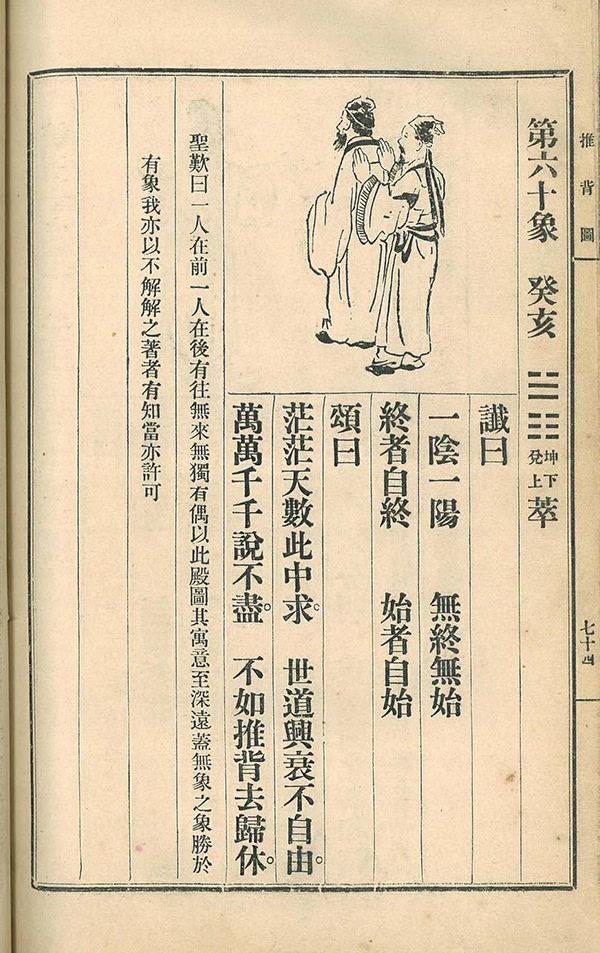 推背圖
七十四
第六十象 癸亥 ䷬ 坤下兌上 萃
讖曰
一陰一陽 無終無始
終者自終 始者自始
頌曰
茫茫天數此中求。 世道興衰不自由。
萬萬千千說不盡。 不如推背去歸休。
聖歎曰一人在前一人在後有往無來無獨有偶以此殿圖其寓意至深遠蓋無象之象勝於
有象我亦以不解解之著者有知當亦許可